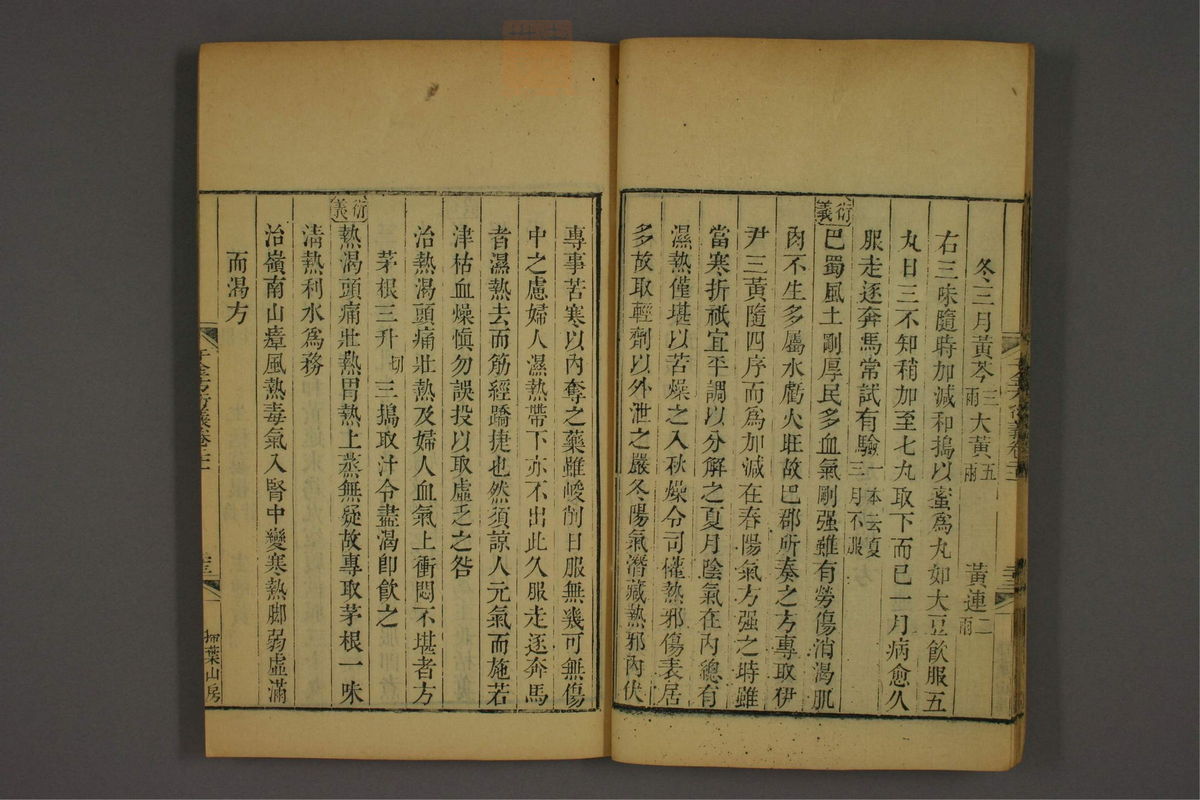 冬三月黃芩三兩大黃五兩黃連二兩
右三味隨時加減和搗以蜜爲丸如大豆飮服五
丸日三不知稍加至七丸取下而已一月病愈久
服走逐奔馬常試有驗一本云夏三月不服
衍義
巴蜀風土剛厚民多血氣剛强雖有勞傷消渴肌
肉不生多屬水虧火旺故巴郡所奏之方專取伊
尹三黃隨四序而爲加減在春陽氣方强之時雖
當寒折祇宜平調以分解之夏月陰氣在內總有
濕熱僅堪以苦燥之入秋燥令司權熱邪傷表居
多故取輕劑以外泄之嚴冬陽氣潛藏熱邪內伏
專事苦寒以內奪之藥雖峻削日服無幾可無傷
中之慮婦人濕熱帶下亦不出此久服走逐奔馬
者濕熱去而筋經蹻捷也然須諒人元氣而施若
津枯血燥愼勿誤投以取虛乏之咎
治熱渴頭痛壯熱及婦人血氣上衝悶不堪者方
茅根三升切三搗取汁令盡渴卽飮之
衍義
熱渴頭痛壯熱胃熱上蒸無疑故專取茅根一味
淸熱利水爲務
治嶺南山瘴風熱毒氣入腎中變寒熱脚弱虛滿
而渴方
掃葉山房